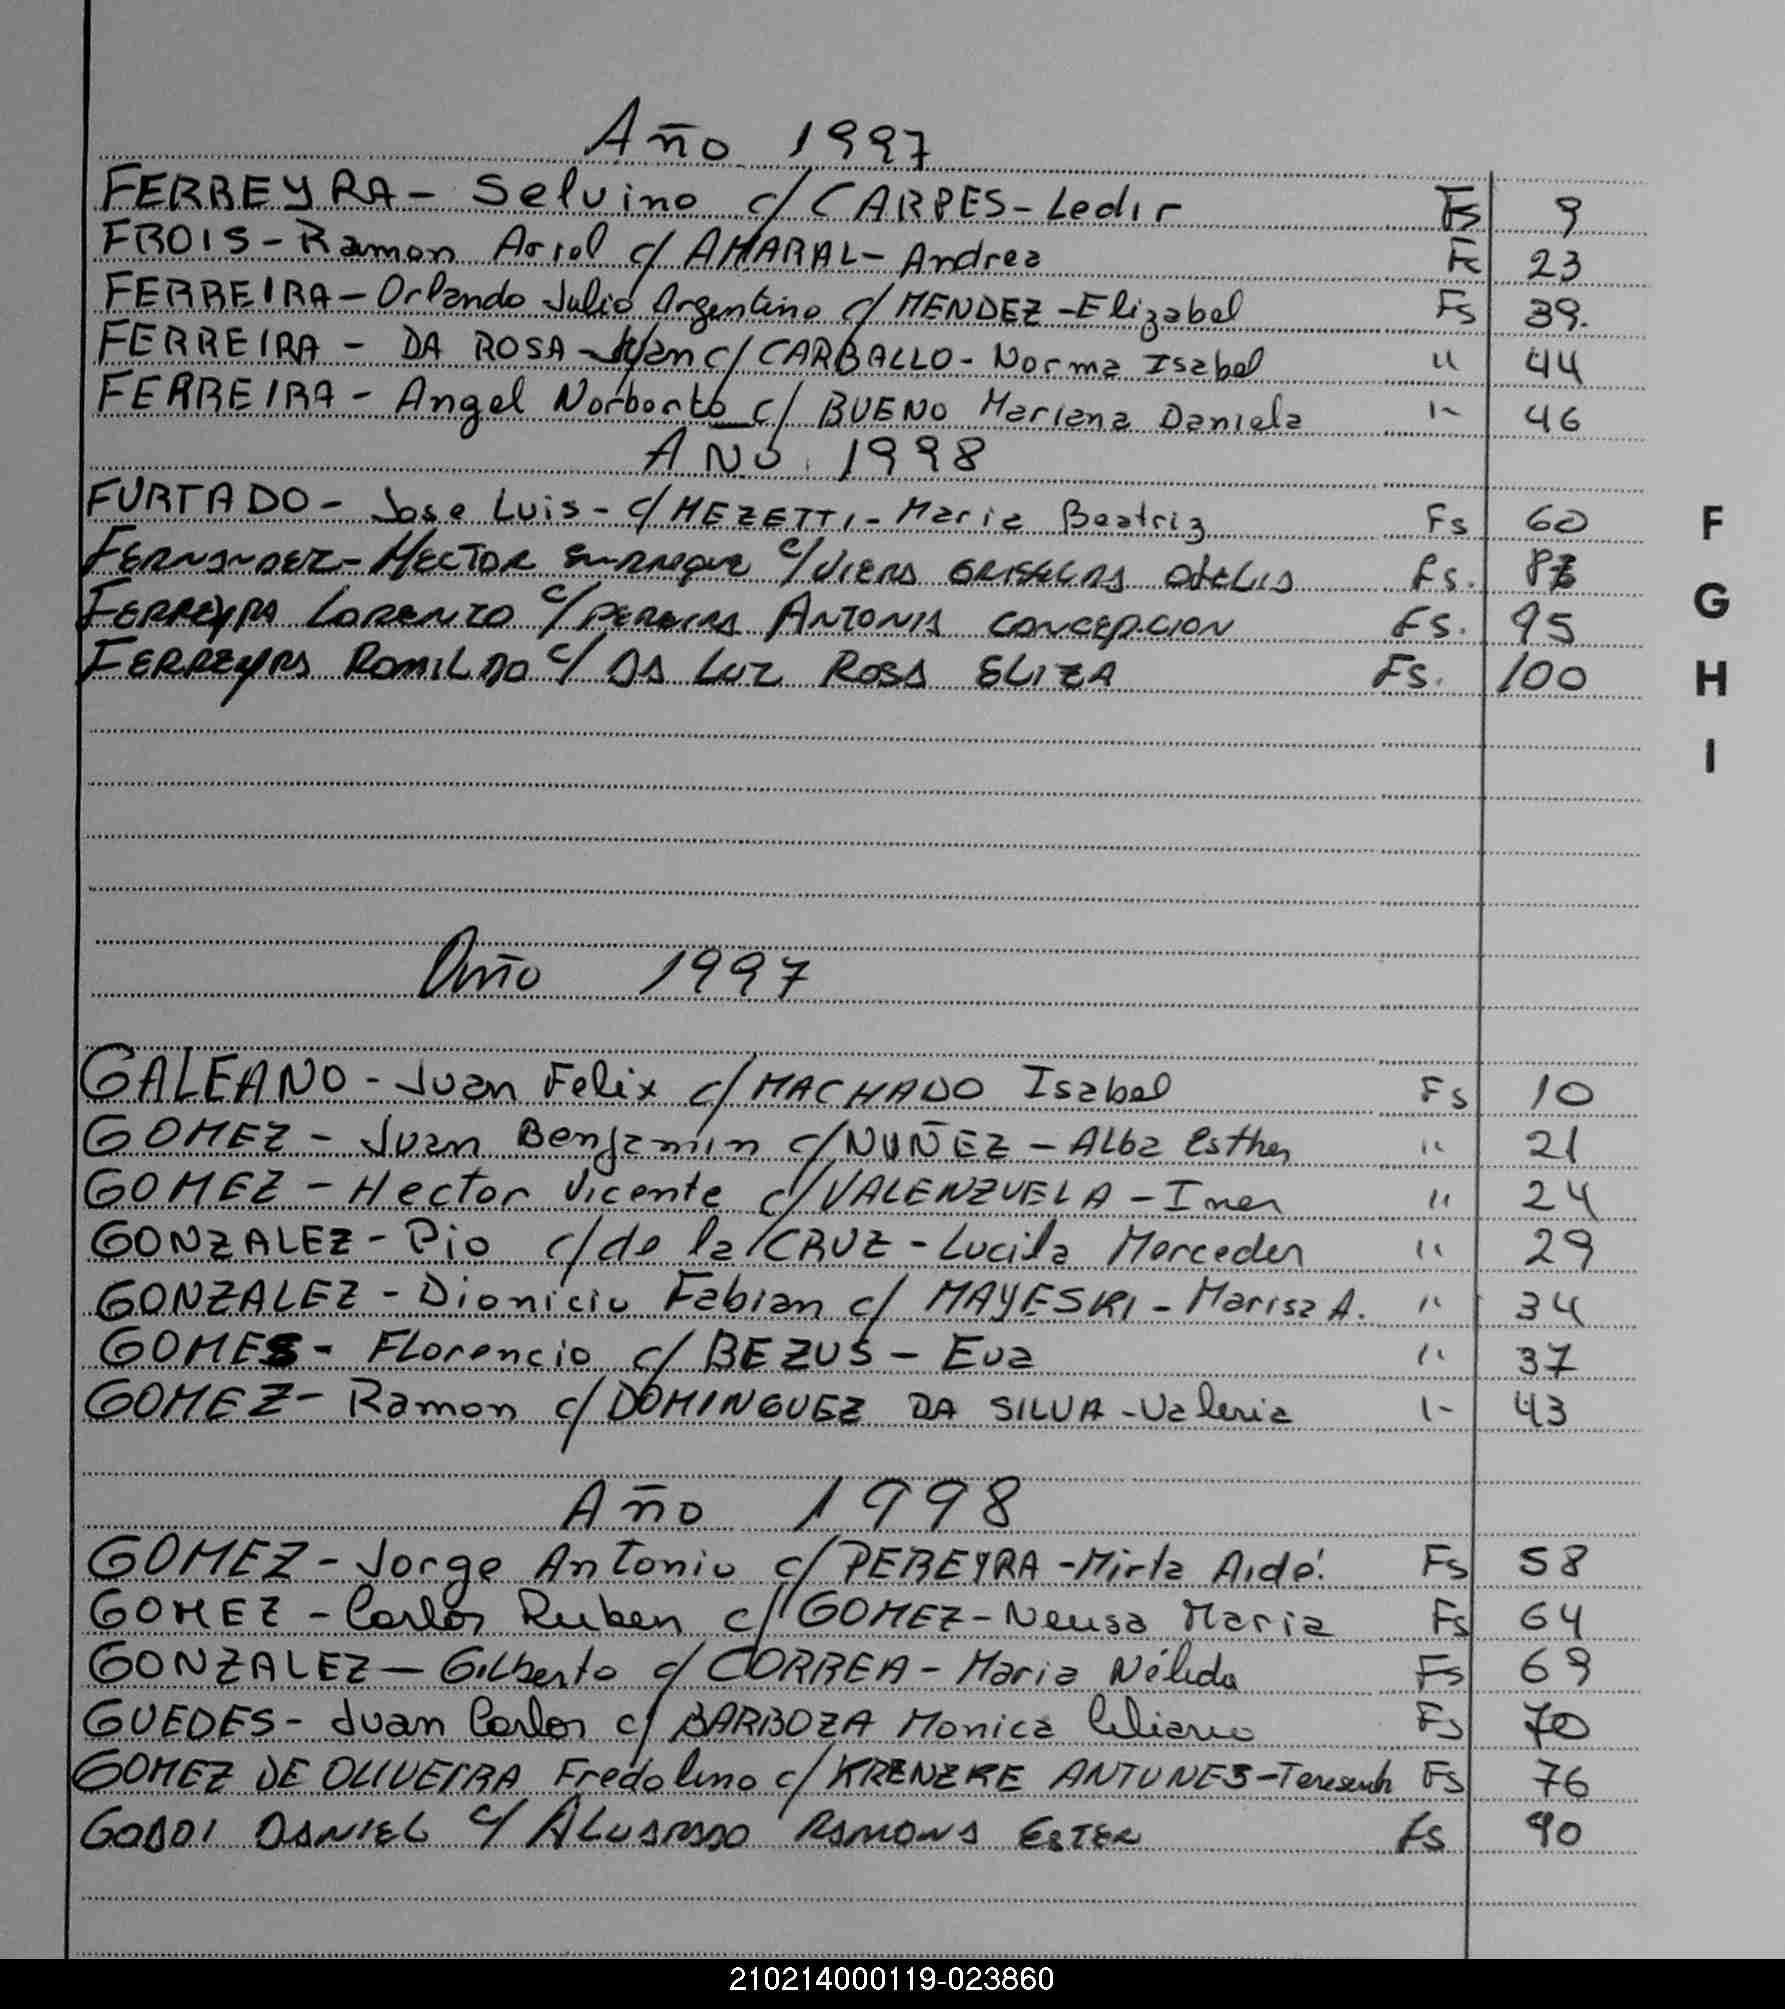 Año 1997
FERREYRA - Selvino c/ CARPES - Ledir Fs 9
FROIS - Ramon Ariel c/ AMARAL - Andrea Fs 23
FERREIRA - Orlando Julio Argentino c/ MENDEZ - Elizabel Fs 39.
FERREIRA - DA ROSA - Juan c/ CARBALLO - Norma Isabel " 44
FERREIRA - Angel Norberto c/ BUENO Mariana Daniela " 46
AÑO 1998
FURTADO - Jose Luis - c/ MEZETTI - Maria Beatriz Fs 60
FERNANDEZ - HECTOR ENRRIQUE c/ VIERA GRISELDA Fs. 87
FERREYRA LORENZO c/ PEREIRA ANTONIA CONCEPCION Fs. 95
FERREYRA ROMILDO c/ DA LUZ ROSA ELIZA Fs. 100
F
G
H
I
Año 1997
GALEANO - Juan Felix c/ MACHADO Isabel Fs 10
GOMEZ - Juan Benjamin c/ NUÑEZ - Alba Esther " 21
GOMEZ - Hector Vicente c/ VALENZUELA - Ines " 24
GONZALEZ - Pio c/ de la CRUZ - Lucila Mercedes " 29
GONZALEZ - Dionicio Fabian c/ MAYESKI - Marisa A. " 34
GOMES - Florencio c/ BEZUS - Eva " 37
GOMEZ - Ramon c/ DOMINGUEZ DA SILVA - Valeria " 43
Año 1998
GOMEZ - Jorge Antonio c/ PEREYRA - Mirta Aidé. Fs 58
GOMEZ - Carlos Ruben c/ GOMEZ - Neusa Maria Fs 64
GONZALEZ - Gilberto c/ CORREA - Maria Nélida Fs 69
GUEDES - Juan Carlos c/ BARBOZA Monica Fs 70
GOMEZ DE OLIVEIRA Fredolino c/ KRENZKE ANTUNES - Fs 76
GODOI DANIEL c/ ALVARADO RAMONA ESTER Fs 90
210214000119-023860